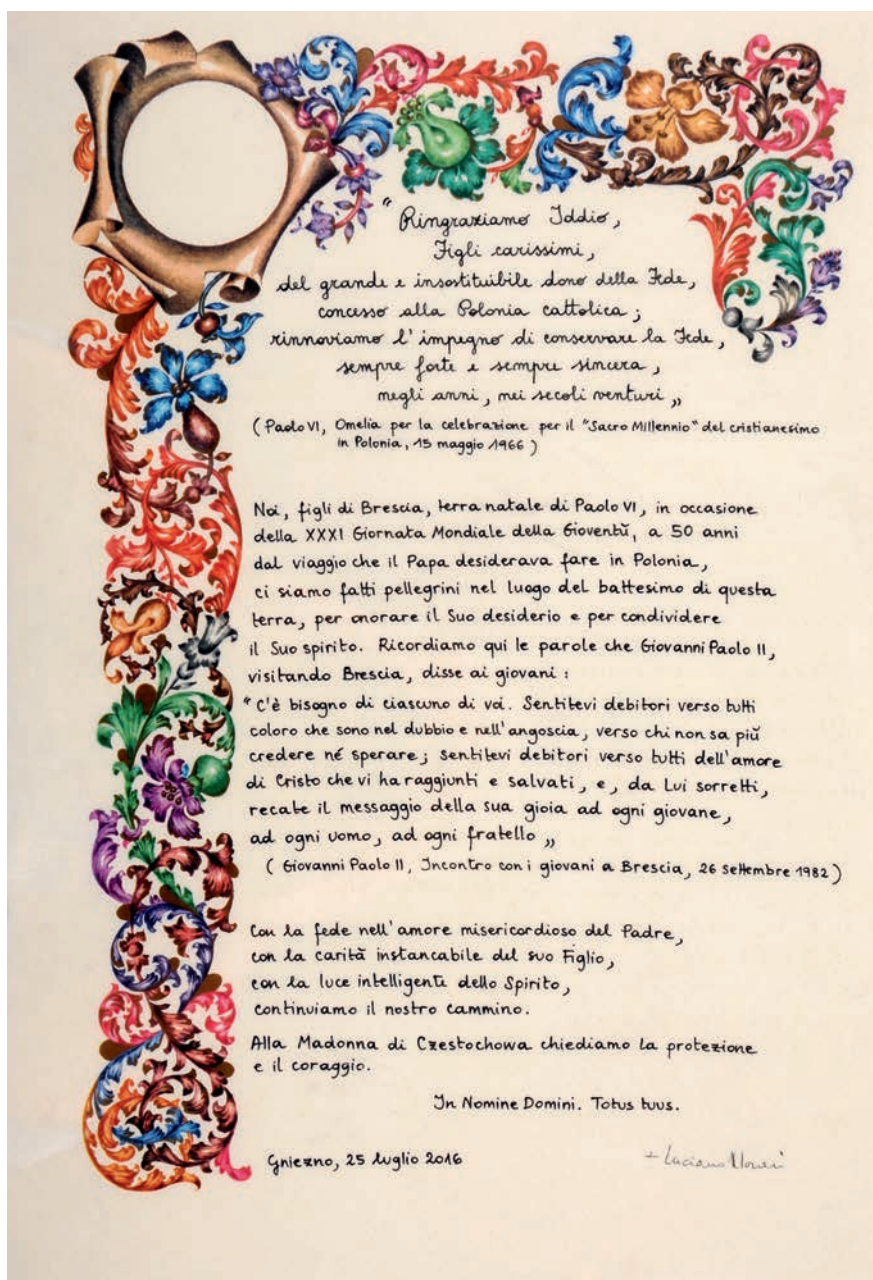 “Ringraziamo Iddio,
Figli carissimi,
del grande e insostituibile dono della Fede,
concesso alla Polonia cattolica;
rinnoviamo l'impegno di conservare la Fede,
sempre forte e sempre sincera,
negli anni, nei secoli venturi„
(Paolo VI, Omelia per la celebrazione per il "Sacro Millennio" del cristianesimo
in Polonia, 15 maggio 1966)
Noi, figli di Brescia, terra natale di Paolo VI, in occasione
della XXXI Giornata Mondiale della Gioventù, a 50 anni
dal viaggio che il Papa desiderava fare in Polonia,
ci siamo fatti pellegrini nel luogo del battesimo di questa
terra, per onorare il Suo desiderio e per condividere
il Suo spirito. Ricordiamo qui le parole che Giovanni Paolo II,
visitando Brescia, disse ai giovani:
“C'è bisogno di ciascuno di voi. Sentitevi debitori verso tutti
coloro che sono nel dubbio e nell'angoscia, verso chi non sa più
credere né sperare; sentitevi debitori verso tutti dell'amore
di Cristo che vi ha raggiunti e salvati, e, da Lui sorretti,
recate il messaggio della sua gioia ad ogni giovane,
ad ogni uomo, ad ogni fratello„
(Giovanni Paolo II, Incontro con i giovani a Brescia, 26 settembre 1982)
Con la fede nell'amore misericordioso del Padre,
con la carità instancabile del suo Figlio,
con la luce intelligente dello Spirito,
continuiamo il nostro cammino.
Alla Madonna di Czestochowa chiediamo la protezione
e il coraggio.
In Nomine Domini. Totus tuus.
Gniezno, 25 luglio 2016
+ Luciano Monari